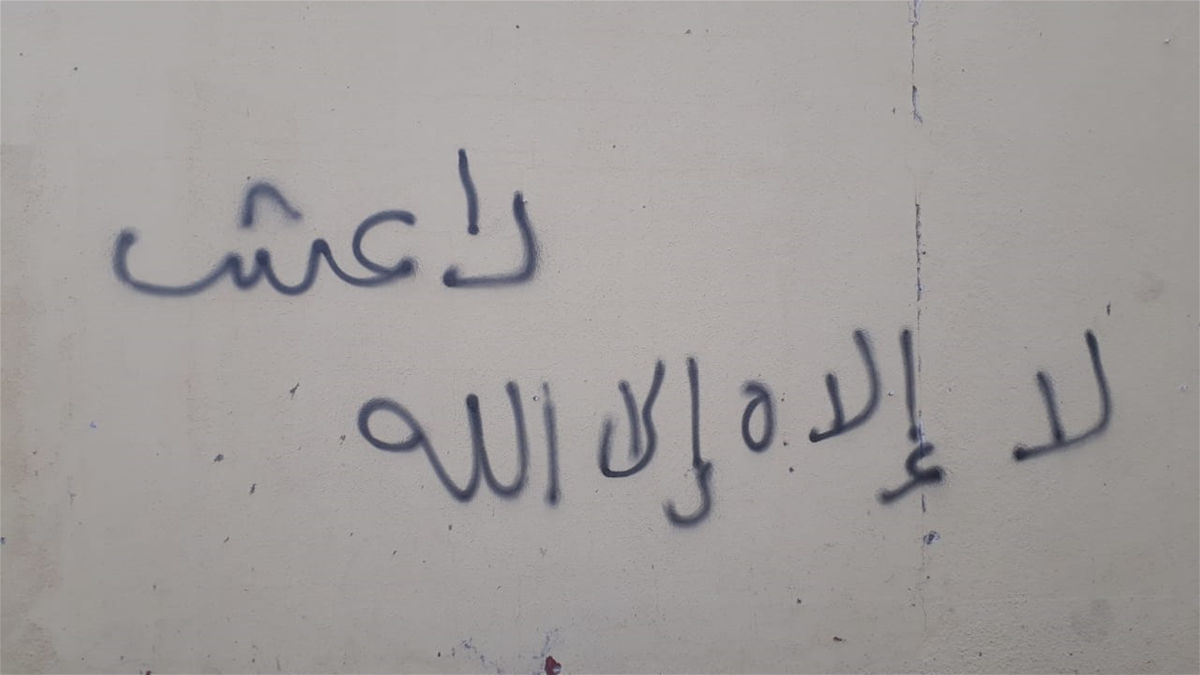 داعش
لا إلاه إلا الله